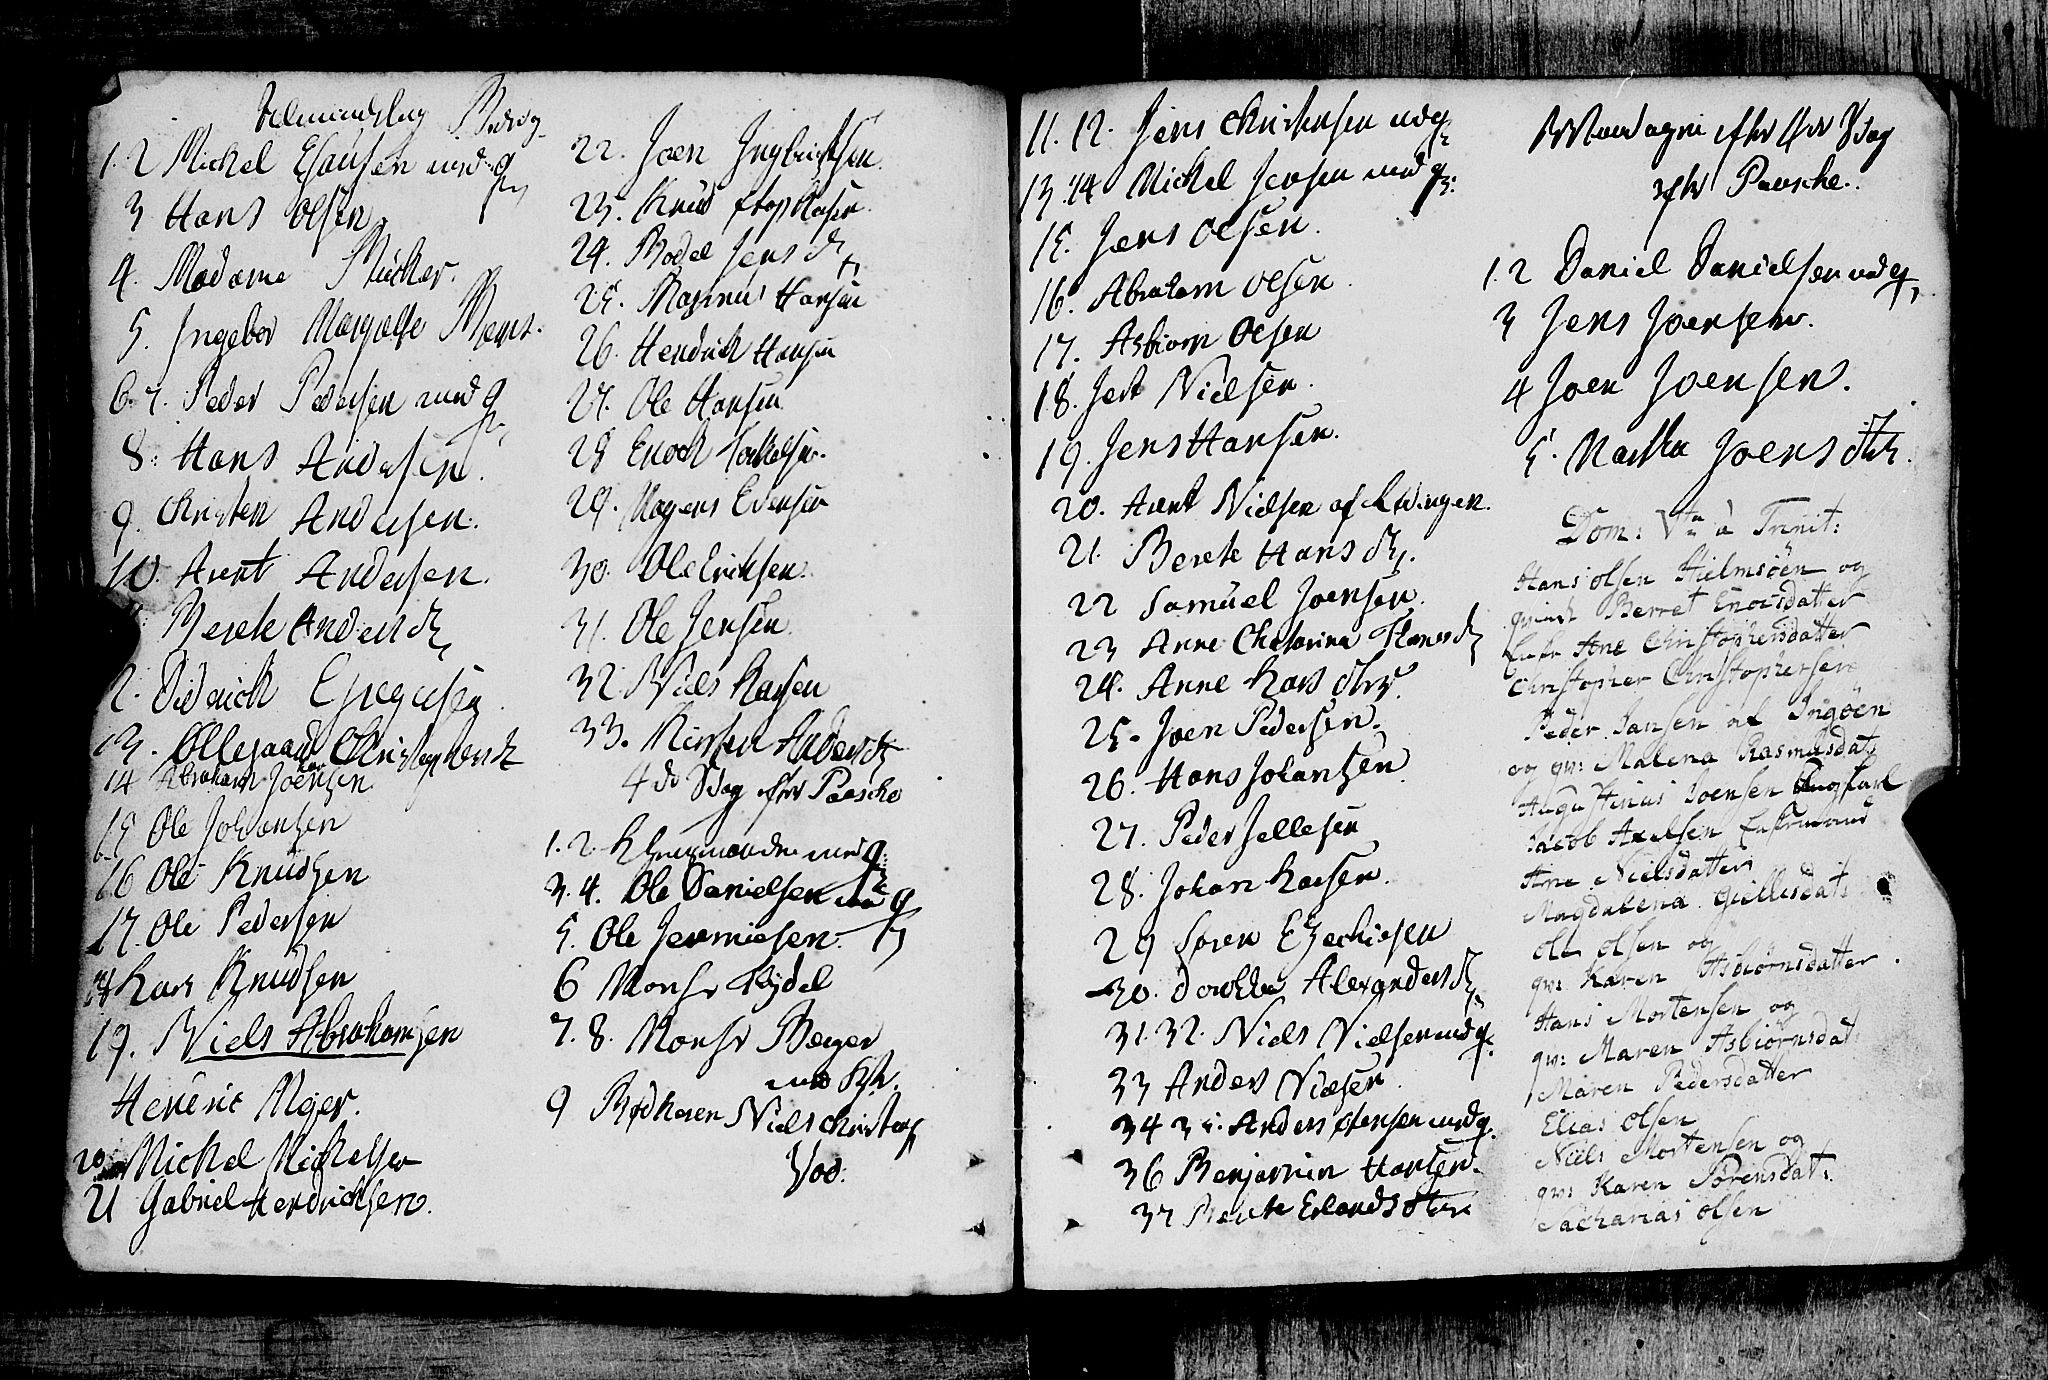 1. 2 Mickel Esaüsen med q
3 Hans Olsen
4. Madame
5. Ingebor
6. 7. Peder Pedersen med q
8. Hans Andersen.
9. Christen Andersen.
10. Arent Andersen.
Berete Andersd
2. Diderich
13. Ollegaard Christophersd
14 Abraham Joensen
15 Ole Johansen
16 Ole Knudsen
17. Ole Pedersen
18 Lars Knudsen
19. Niels Abrahamsen
Henric Mejer.
20 Mickel Mickelsen
21 Gabriel Hendrichsen.
22. Joen Ingbrichtsen.
23. Knud
24. Bodel Jensd
25. Rasmus Hansen
26. Hendrich Hansen
27. Ole Hansen
28 Enoch
29. Mogens Evensen
30. Ole Erichsen.
31. Ole Jensen.
32. Niels Larsen
33. Kirsten Andersd
4de Sdag efter Paaske
1. 2. med q:
3. 4. Ole Danielsen med q
5. Ole Jermiesen.
6 Monsr
7. 8. Monsr Berger
med
9 Niels
11. 12. Jens Christensen med q:
13. 14 Mickel Jensen med q:
15. Jens Olsen.
16. Abraham Olsen.
17. Asbiorn Olsen
18. Jert Nielsen.
19. Jens Hansen.
20. Arent Nielsen af
21. Berete Hansd.
22 Samuel Joensen.
23 Anne Chatarina Hansd
24. Anne Larsdtr.
25. Joen Pedersen.
26. Hans Johansen
27. Peder Jellesen
28. Johan Larsen.
29 Søren Ezechiesen
30. Dorthe Alexandersd
31. 32. Niels Nielsen med q.
33 Anders Nielsen
34 35. Anders med q.
36 Benjamin Hansen.
37 Berete Erlandsdtr
efter 4de Sdag
efter Paasche.
1. 2 Daniel Danielsen med q
3 Jens Joensen.
4 Joen Joensen.
5. Martha Joensdtr.
Dom: Vta à Trinit:
Hans Olsen Hielmsöen og
qvinde Berret Enocsdatter
Enke Ane Christophersdatter
Christopher Christophersen
Peder Jansen af Ingöen
og qv: Malena Rasmusdat
Augustinus Joensen Ungkarl
Jacob Axelsen Enkemand
Ane Nielsdatter
Magdalena Giellesdat:
Ole Olsen og
qv: Karen Asbiörnsdatter.
Hans Mortensen og
qv: Maren Asbiörnsdat:
Maren Pedersdatter
Elias Olsen
Niels Mortensen og
qv: Karen Sörensdat:
Zacharias Olsen